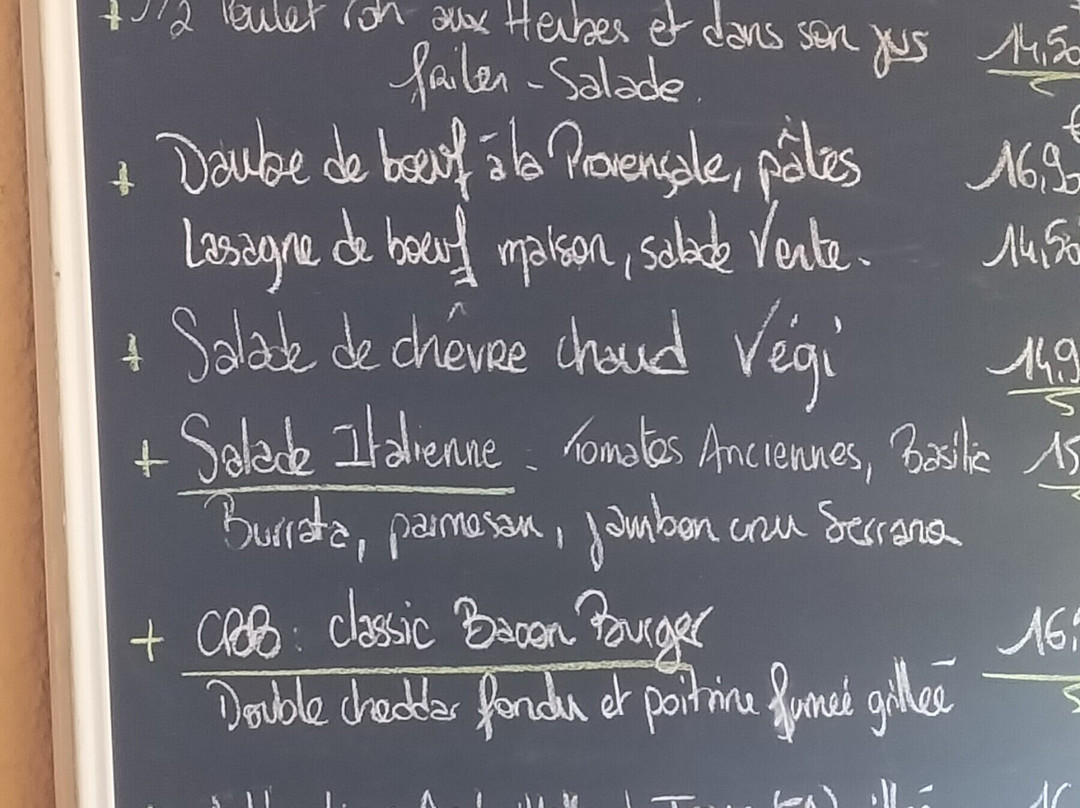 + 1/2 Poulet rôti aux Herbes et dans son jus 14,50
frites - Salade.
+ Daube de bœuf à la Provençale, pâtes 16,90
Lasagne de bœuf maison, salade Verte. 14,50
+ Salade de chèvre chaud Végi 14,9
+ Salade Italienne - Tomates Anciennes, Basilic 15
Burrata, parmesan, jambon cru Serrano
+ CBB : classic Bacon Burger 16,
Double cheddar fondu et poitrine fumée grillée